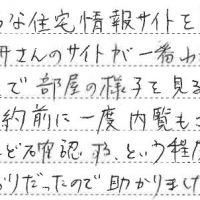 な住宅情報サイトを
さんのサイトが一番わ
で部屋の様子を見る
約前に一度内覧も
ど確認する、という程
りだったので助かりまし